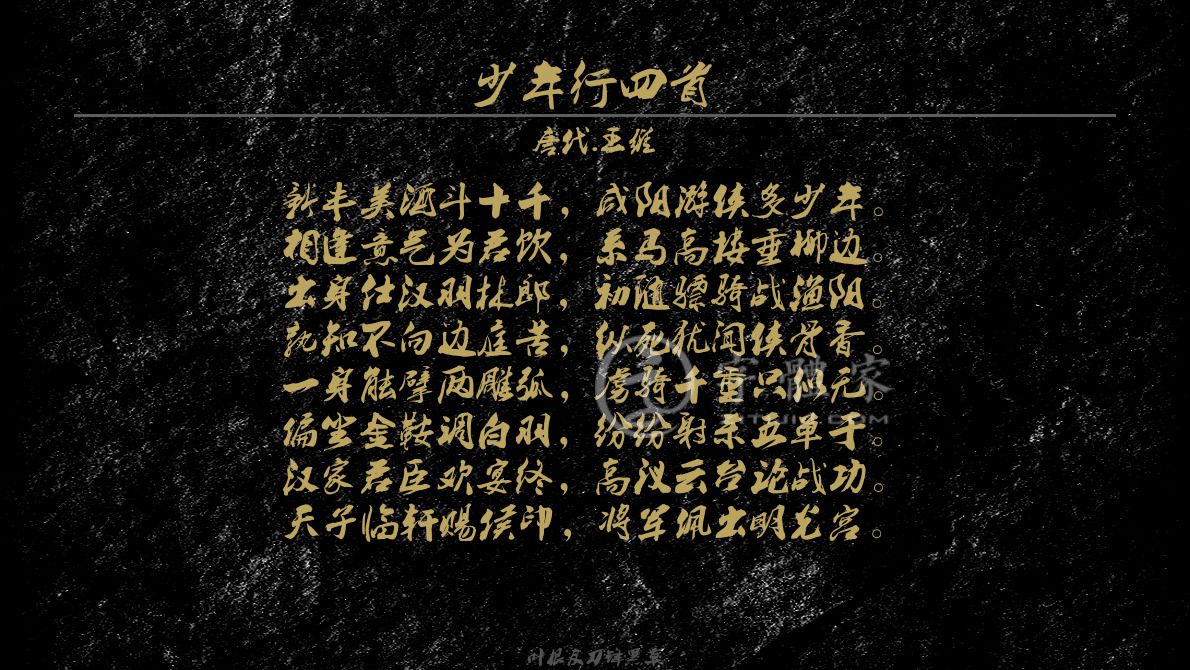 少年行四首
唐代.王维
新丰美酒斗十千，咸阳游侠多少年。
相逢意气为君饮，系马高楼垂柳边。
出身仕汉羽林郎，初随骠骑战渔阳。
孰知不向边庭苦，纵死犹闻侠骨香。
一身能擘两雕弧，虏骑千重只似无。
偏坐金鞍调白羽，纷纷射杀五单于。
汉家君臣欢宴终，高议云台论战功。
天子临轩赐侯印，将军佩出明光宫。
字體家